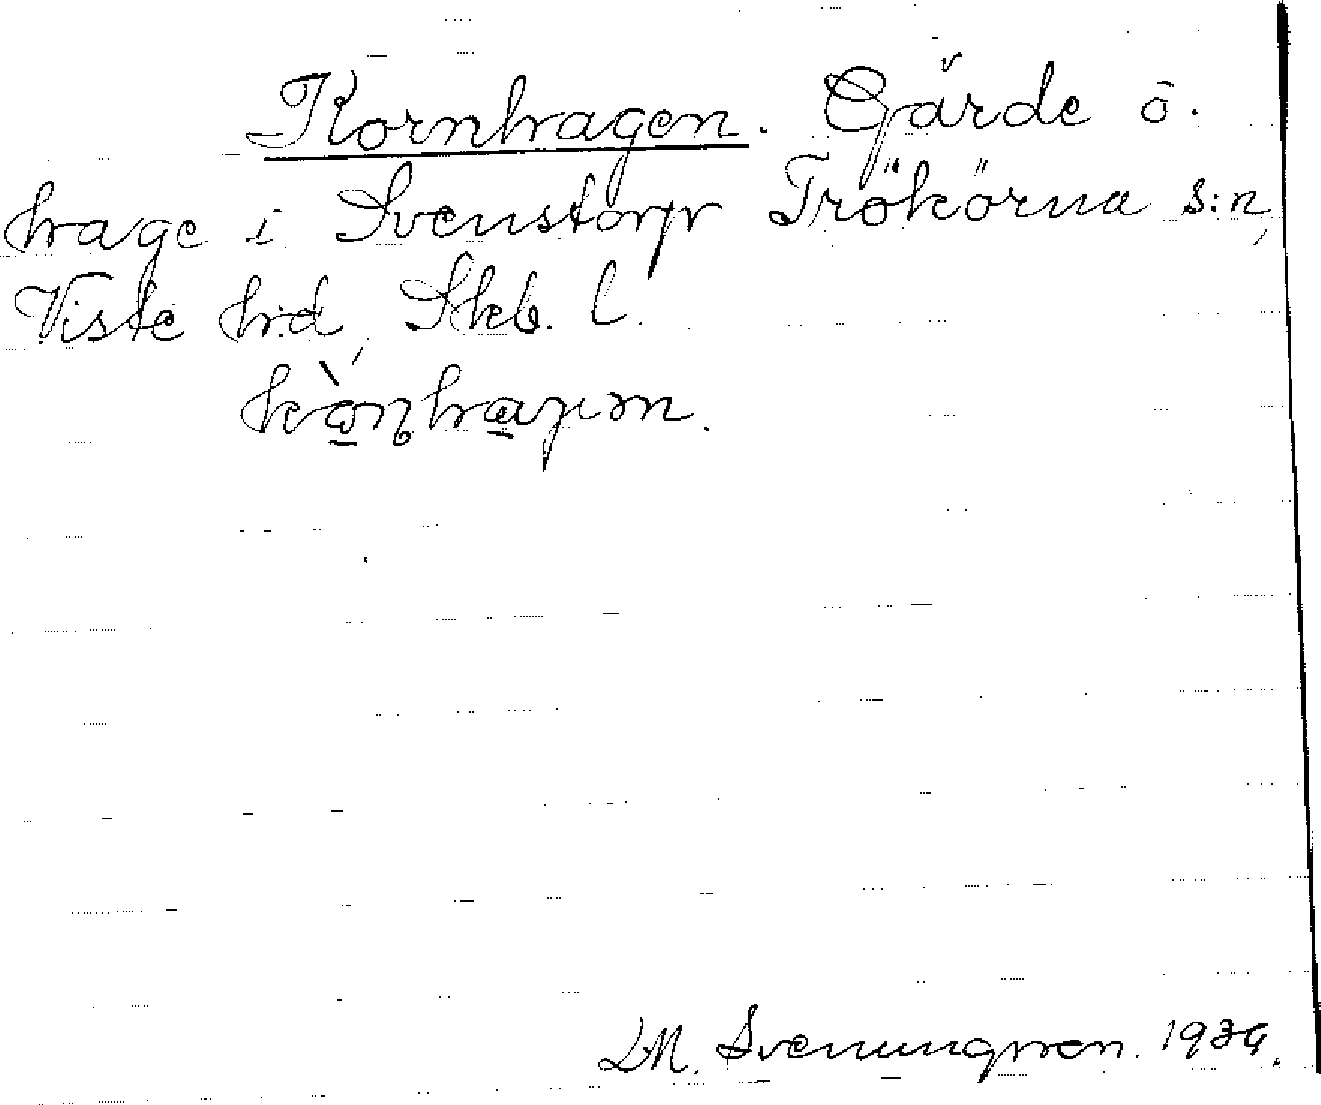 Kornhagen. Gärde o.
hage i Svenstorp Trökörna s:n,
Viste h:d, Skb. l.
LM. Svenungsson. 1934.